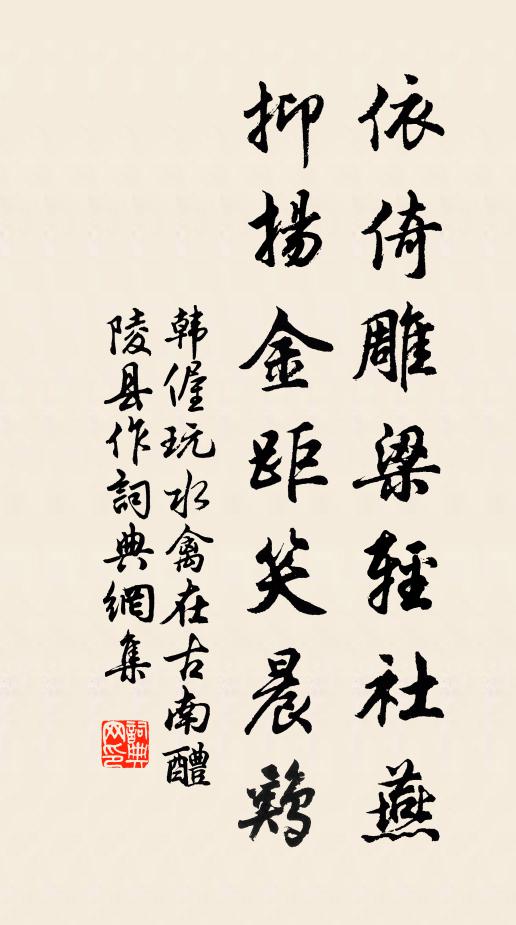 依倚雕梁輕社燕
抑揚金距笑晨鷄
韩偓玩水禽在古南醴
陵县作詞典網集
詞典
网印